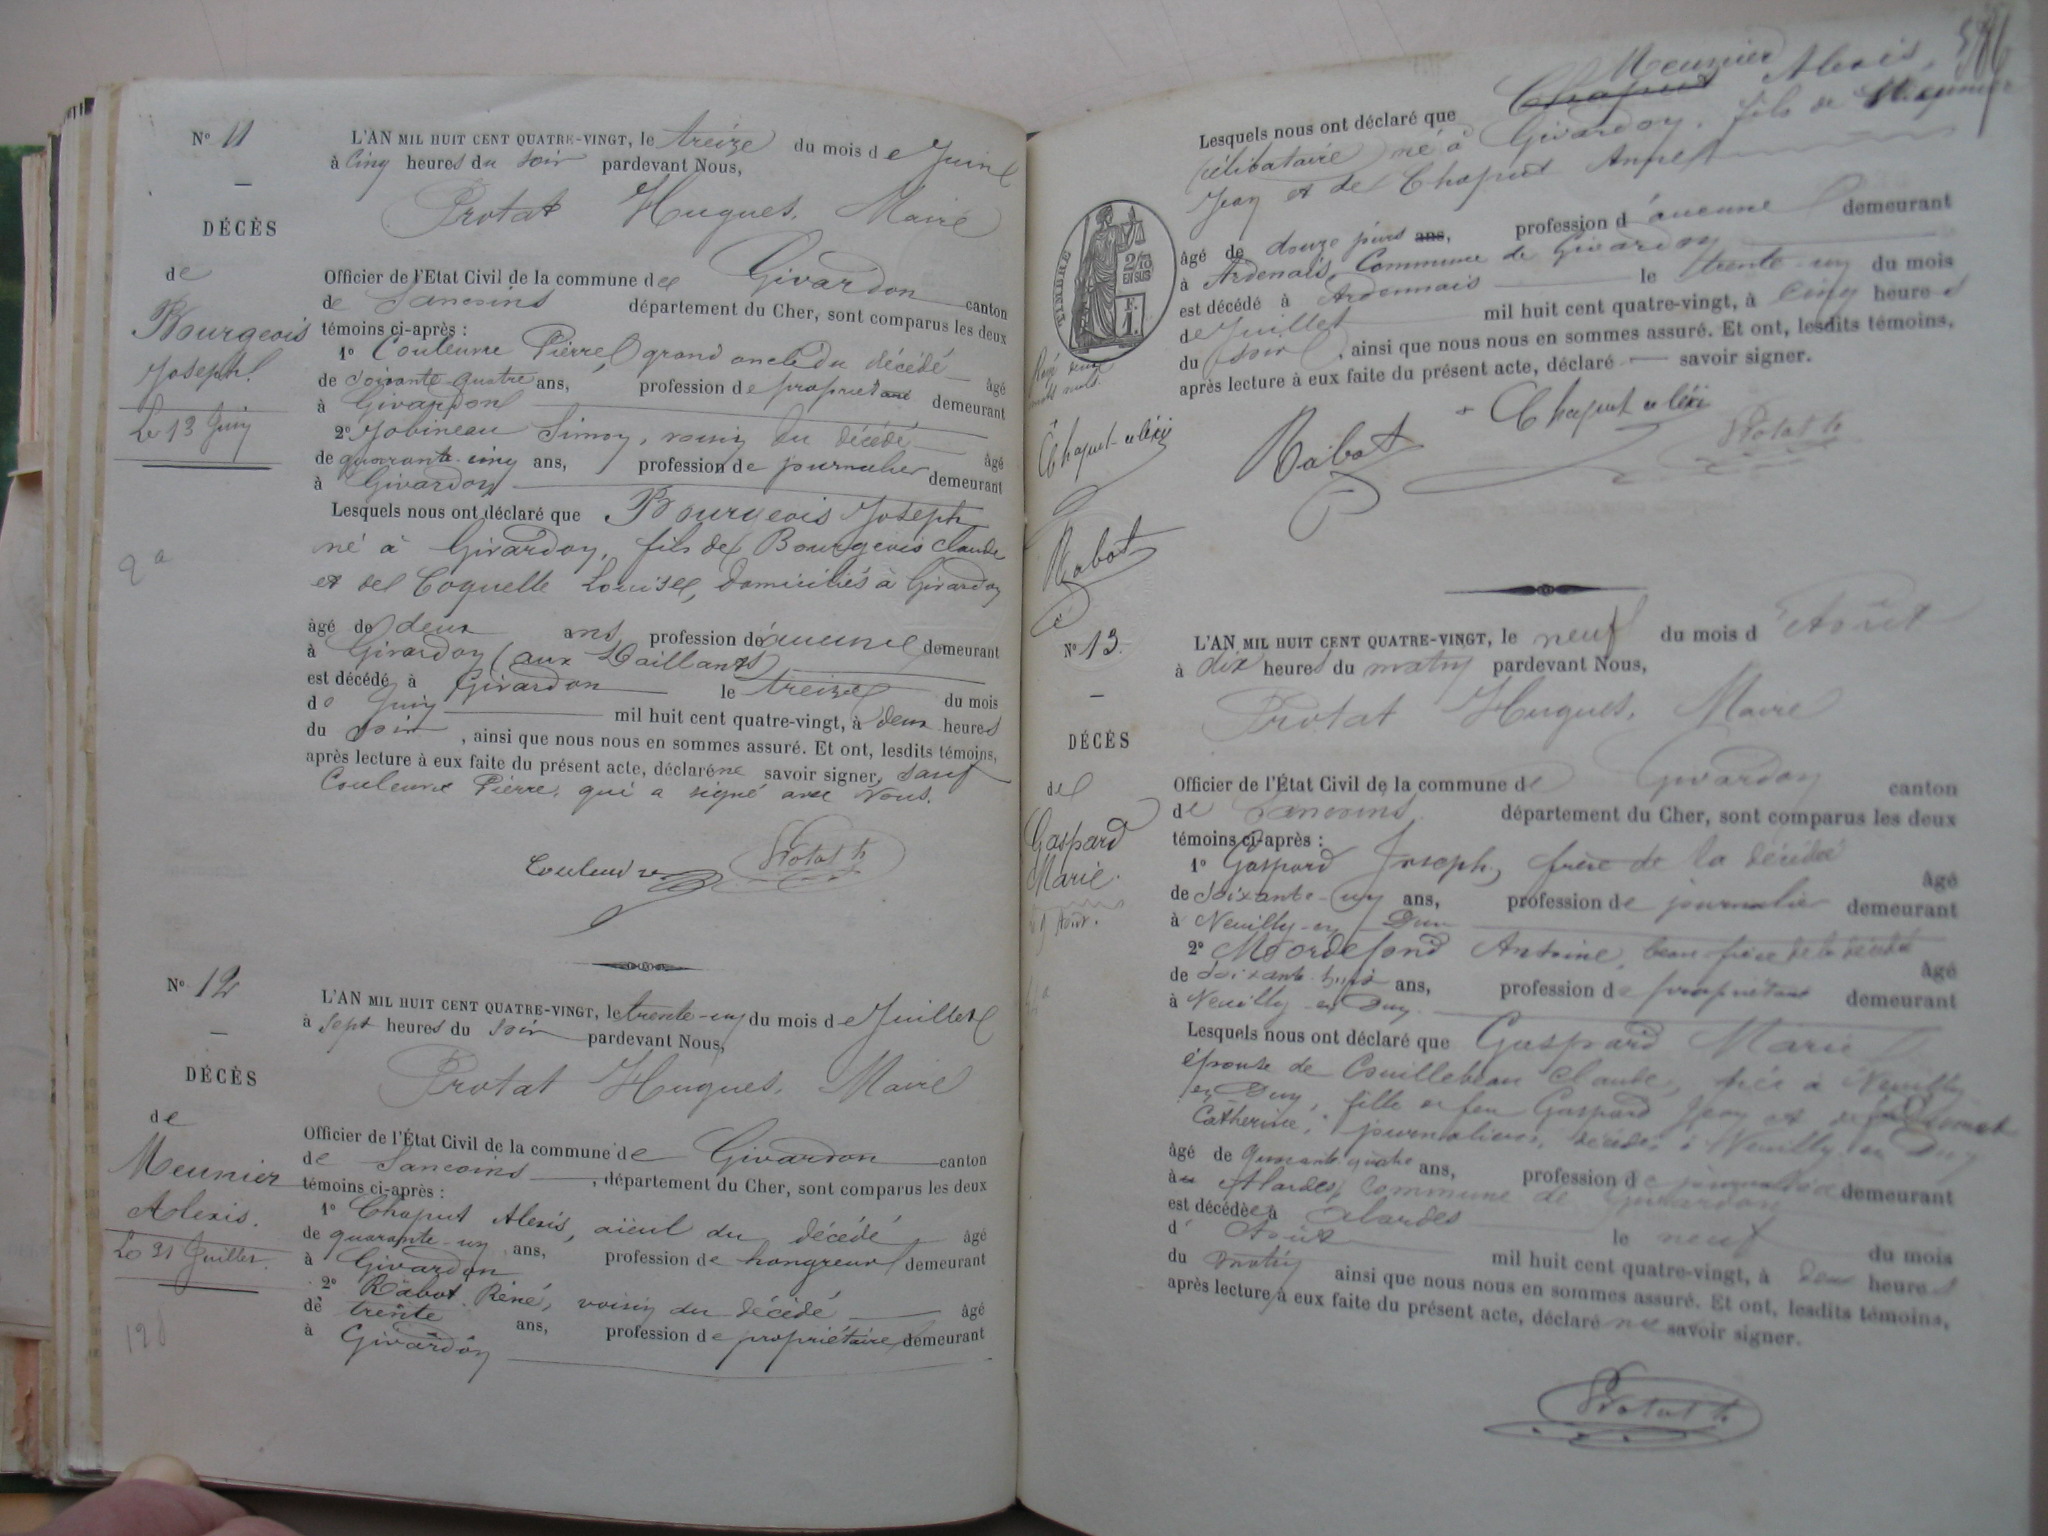 N° 11
L'AN MIL HUIT CENT QUATRE-VINGT, le treize du mois de Juin
à cinq heures du soir pardevant Nous,
Protat Hugues, Maire
DÉCÈS
de
Bourgeois
Joseph.
Le 13 Juin
2 a
Officier de l'Etat Civil de la commune de Givardon canton
de Sancoins département du Cher, sont comparus les deux
témoins ci-après :
1° Couleuvre Pierre, grand oncle du décédé âgé
de soixante quatre ans, profession de propriétaire demeurant
à Givardon
2° Jobineau Simon, voisin du décédé âgé
de quarante cinq ans, profession de journalier demeurant
à Givardon
Lesquels nous ont déclaré que Bourgeois Joseph
né à Givardon, fils de Bourgeois Claude
et de Coquelle Louise, domiciliés à Givardon
âgé de deux ans, profession d'aucune demeurant
à Givardon (aux Daillants)
est décédé à Givardon le treize du mois
de Juin mil huit cent quatre-vingt, à deux heures
du soir, ainsi que nous nous en sommes assuré. Et ont, lesdits témoins,
après lecture à eux faite du présent acte, déclaré ne savoir signer, sauf
Couleuvre Pierre, qui a signé avec Nous.
Couleuvre Protat h
N° 12
L'AN MIL HUIT CENT QUATRE-VINGT, le trente-un du mois de Juillet
à sept heures du soir pardevant Nous,
Protat Hugues, Maire
DÉCÈS
de
Meunier
Alexis.
Le 31 Juillet.
12 j
Officier de l'État Civil de la commune de Givardon canton
de Sancoins, département du Cher, sont comparus les deux
témoins ci-après :
1° Chaput Alexis, aïeul du décédé âgé
de quarante-un ans, profession de hongreur demeurant
à Givardon
2° Rabot René, voisin du décédé âgé
de trente ans, profession de propriétaire demeurant
à Givardon
Meunier
Lesquels nous ont déclaré que Chaput Alexis,
célibataire né à Givardon, fils de Meunier
Jean et de Chaput Anne
âgé de douze jours ans, profession d'aucune demeurant
à Ardenais, Commune de Givardon
est décédé à Ardennais le trente-un du mois
de Juillet mil huit cent quatre-vingt, à cinq heures
du soir, ainsi que nous nous en sommes assuré. Et ont, lesdits témoins,
après lecture à eux faite du présent acte, déclaré savoir signer.
TIMBRE
2/10
EN SUS
F.
1.
Rayé deux
mots nuls.
Chaput alexi
Rabot
Rabot Chaput alexi Protat h
N° 13.
L'AN MIL HUIT CENT QUATRE-VINGT, le neuf du mois d'Août
à dix heures du matin pardevant Nous,
Protat Hugues, Maire
DÉCÈS
de
Gaspard
Marie.
9 Août.
Officier de l'État Civil de la commune de Givardon canton
de Sancoins département du Cher, sont comparus les deux
témoins ci-après :
1° Gaspard Joseph, frère de la décédée âgé
de soixante-un ans, profession de journalier demeurant
à Neuilly-en-Dun
2° Antoine, beau-frère de la décédée âgé
de soixante huit ans, profession de propriétaire demeurant
à Neuilly-en-Dun.
Lesquels nous ont déclaré que Gaspard Marie
épouse de Couillebeau Claude, née à Neuilly
en Dun, fille de feu Gaspard Jean et de
Catherine, journaliers, décédés à Neuilly en Dun
âgé de quarante quatre ans, profession de journalière demeurant
à Alardes, commune de Givardon
est décédée à Alardes le neuf du mois
d'Août mil huit cent quatre-vingt, à deux heures
du matin ainsi que nous nous en sommes assuré. Et ont, lesdits témoins,
après lecture à eux faite du présent acte, déclaré ne savoir signer.
Protat h